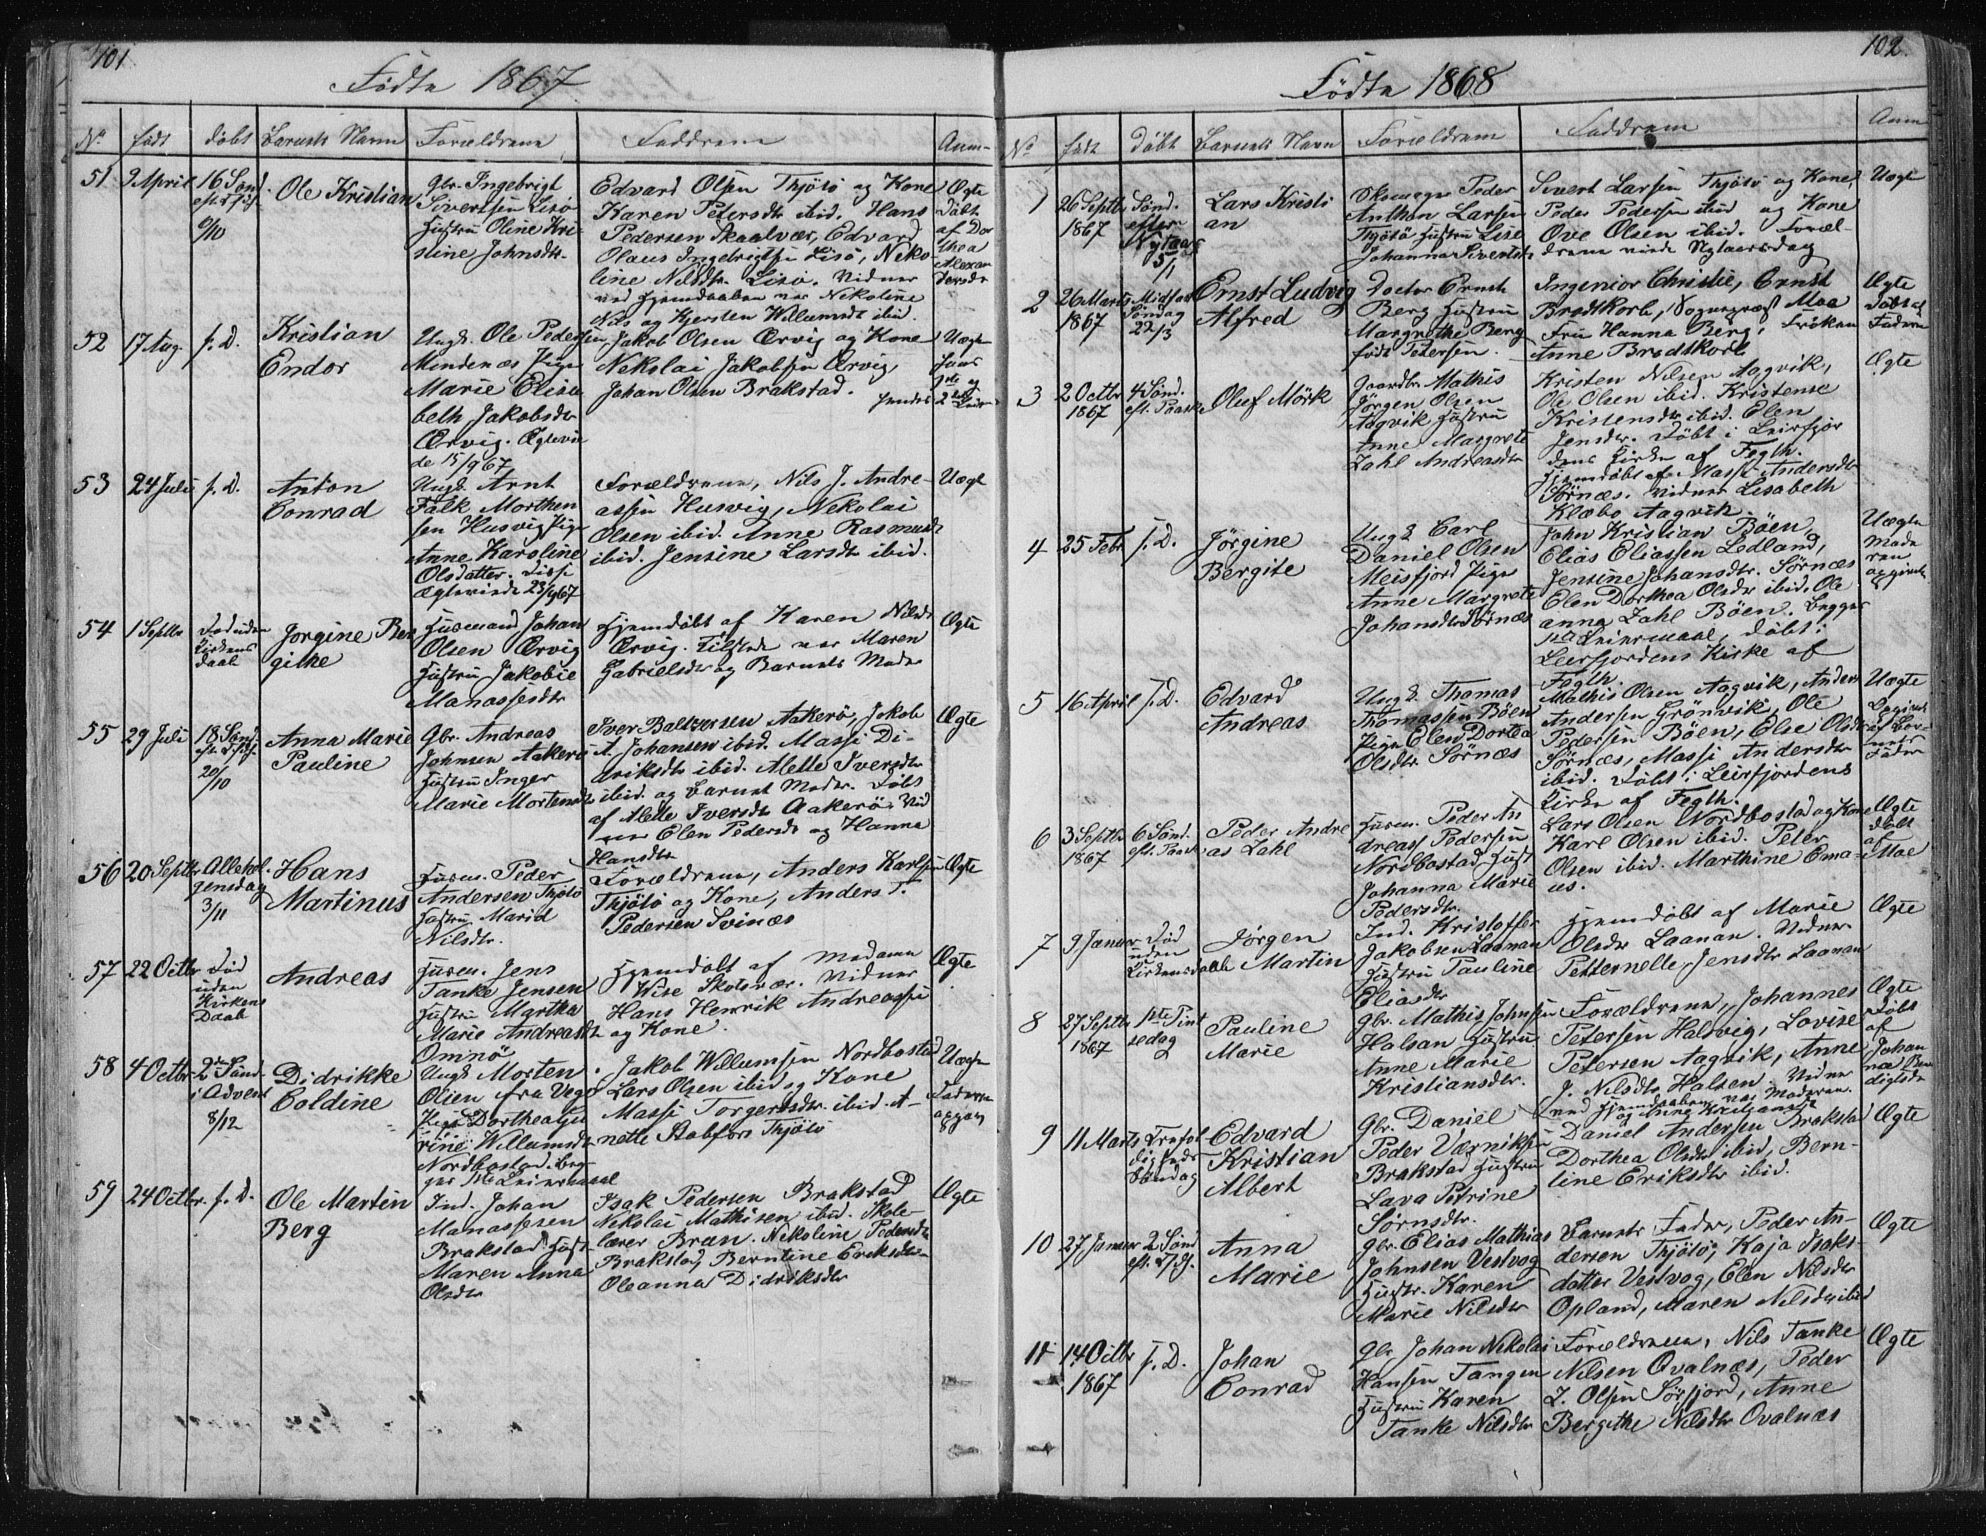 101
Födte 1867
No födt döbt Barnets Navn Forældrene Faddrene Anm-
51 9 April 16 Sönd. eft. Trft. 6/10
Ole Kristian
Gbr. Ingebrigt
Sivertsen Lisö
Hustru Oline Kri-
stine Johnsdtr.
Edvard Olsen Thjötö og Kone
Karen Petersdtr ibid. Hans
Pedersen Skaalvær, Edvard
Olaus Ingebrigtsen Lisö, Niko-
line Nilsdtr. Lisö. Vidner
ved Hjemdaaben var Nekoline
Nils og Kjersten Willumsdt ibid.
Ægte
Döbt
af Dor
thea
Alexan
dersdr
52 17 Aug. s. D.
Kristian
Endor
Ungk. Ole Pedersen
Mindenæs Pige
Marie Elisa
beth Jakobsdtr
Ørvig. Ægtevie
de 15/9 67
Jakob Olsen Ørvig og Kone
Nekolai Jakobsen Ørvig,
Johan Olsen Brakstad.
Uægte
hans
1ste og
hendes 2det
Leier
53 24 Juli s. D.
Anton
Conrad
Ungk. Arnt
Falk Morthen
sen Husvig Pige
Anne Karoline
Olsdatter. Disse
Ægteviede 23/9 67
Forældrene, Nils J. Andre-
assen Husvig, Nekolai
Olsen ibid. Anne Rasmusdt
ibid. Jensine Larsdtr ibid.
Uægt
54 1 Septbr
Död uden
Kirkens
Daab
Jorgine Ber
githe
Husmand Johan
Olsen Ørvig
Hustru Jakobie
Manassesdtr
Hjemdöbt af Karen Nilsdt
Ørvig. Tilstede var Maren
Gabrielsdtr og Barnets Moder
Ægte
55 29 Juli 18 Sönd. eft. Trft. 20/10
Anna Marie
Pauline
Gbr. Andreas
Johnsen Aakerö
Hustru Inger
Marie Mortensdt
Iver Baltzersen Aakerö, Jakob
A. Johansen ibid. Massi Di-
driksdtr ibid. Alette Iversdtr
ibid. og Barnets Moder. Döbt
af Alette Iversdt Aakerö. Vid
ner Elen Pedersdt og Hanna
Hansdtr
Ægte
56 20 Septbr
Allehel-
gensdag
3/11
Hans
Martinus
Husm. Peder
Andersen Thjötö
Hustru Marid
Nilsdtr.
Forældrene, Anders Karlsen
Thjötö og Kone, Anders T.
Pedersen Svinæs
Ægte
57 22 Octbr
Död
uden
Kirkens
Daab
Andreas
Husm. Jens
Tanke Jensen
Hustru Martha
Marie Andreasdt
Omnö
Hjemdöbt af Madame
Wise Skotsvær. Vidner
Hans Henrik Andreassen
og Kone.
Ægte
58 4 Octbr
2den Sönd.
i Advent
8/12
Didrikke
Coldine
Ungk Morten
Olsen fra Vega
Pige Dorthea Ka
rine Willumsdtr
Nordbostad. Beg-
ges 1ste Leiermaal
Jakob Willumsen Nordbostad
Lars Olsen ibid og Kone
Massi Torgersdtr. ibid. A-
nette Stabfors Thjötö
Uægte
Faderen
opgav
59 24 Octbr. s. D.
Ole Martin
Berg
Ind. Johan
Manassesen
Brakstad Hust
Maren Anna
Olsdtr
Isak Pedersen Brakstad
Nekolai Mathisen ibid. Skole-
lærer Brun. Nekoline Pedersdt
Brakstad, Berntine Eriksdtr
Oleanna Didriksdtr
Ægte
102
Födte 1868
No födt Döbt Barnets Navn Forældrene Faddrene Anm
1 26 Septbr 1867
Sönd.
efter
Nytaar
5/1
Lars Kristi
an
Peder
Anthon Larsen
Thjötö Hustru Lise
Johanna Sivertsdt
Sivert Larsen Thjötö og Kone,
Peder Pedersen ibid og Kone
Ove Olsen ibid. Foræl-
drene viede Nytaarsdag
Uægte
2 26 Marts 1867
Midfaste
Söndag
22/3
Ernst Ludvig
Alfred
Doctor Ernst
Berg Hustru
Margrethe Berg
födt Petersen.
Ingeniør Christie, Ernst
Brodtkorb, Sognepræst Moe
Fru Hanna Berg, Fröken
Anne Brodtkorb
Ægte
Döbt af
Faderen
3 2 Octbr 1867
4 Sönd.
eft. Paaske
Oluf Mörk
Gaardbr Mathis
Jörgen Olsen
Aagvik Hustru
Anne Margrete
Zahl Andreasdtr
Kristen Nilsen Aagvik,
Ole Olsen ibid. Kristense
Kristensdtr ibid. Elen
Jensdtr. Döbt i Leirfjor
dens Kirke af Fegth.
Hjemdöbt af Massi Andersdtr
Sörnæs. Vidner Lisabeth
Klæbo Aagvik
Ægte
4 25 Febr s. D.
Jörgine
Bergite
Ungk Carl
Daniel Olsen
Meisfjord Pige
Anne Margrete
Johansdtr Sörnæs
John Kristian Böen,
Elias Eliassen Ledland,
Jensine Johansdtr. Sörnæs
Elen Dorthea Olsdtr ibid. Ole
anna Zahl Böen. Begges
1ste Leiermaal, döbt i
Leirfjordens Kirke af
Fegth
Uægte
Mode
ren
opgivet
5 16 April s. D.
Edvard
Andreas
Ungk. Thomas
Thomassen Böen
Pige Elen Dortea
Olsdtr Sörnæs
Mathis Olsen Aagvik, Anders
Andersen Grönvik, Ole
Pedersen Böen, Else Olsdt
Sörnæs, Massi Andersdtr
ibid. Döbt i Leirfjordens
Kirke af Fegth.
Uægte
Opgivet
af Bar-
nets
Fader
6 3 Septbr 1867
6 Sönd.
eft. Paask
Peder Andre
as Zahl
Husm. Peder An
dreas Pedersen
Nordbostad Hust
Johanna Marie
Pedersdtr.
Lars Olsen Nordbostad og Kone
Karl Olsen ibid. Peter
Olsen ibid. Marthine Ema-
us.
Ægte
döbt
af
Moe
7 9 Januar
Död
uden
Kirkens daab
Jörgen
Martin
Ind. Kristoffer
Jakobsen Laanan
Hustru Pauline
Eliasdtr
Hjemdöbt af Marie
Olsdtr Laanan. Vidner
Petternelle Jensdtr Laanan
Ægte
8 27 Septbr 1867
1ste Pint
sedag
Pauline
Marie
Gbr. Mathis Johnsen
Halsan Hustru
Anne Marie
Kristiansdtr.
Forældrene, Johannes
Petersen Halsvig, Lovise
Petersen Aagvik, Anne
J. Nilsdtr Halsen. Vidne
ved Hjemdaaben var Moderen
og Anne Kristiansdt
Ægte
Döbt
af
Johan
na Ben
digtsdr
9 11 Marts
Trefol
digheds
Söndag
Edvard
Kristian
Albert
Gbr. Daniel
Peder Værniksen
Brakstad Hustru
Lava Petrine
Sörnsdtr.
Daniel Andersen Brakstad
Dorthea Olsdtr ibid, Bern-
tine Eriksdtr ibid.
Ægte
10 27 Januar
2 Sönd
eft. Trft.
Anna
Marie
Gbr. Elias Mathias
Johnsen Vestvog
Hustr. Karen
Marie Nilsdtr
Barnets Fader, Peder An-
dersen Thjötö, Kaja Isaks-
datter Vestvog, Elen Nilsdtr
Opland, Maren Nilsdtr ibid
Ægte
11 14 Octbr 1867 s. D.
Johan
Conrad
Gbr Johan Nikolai
Hansen Tangen
Hustru Karen
Tanke Nilsdtr
Forældrene, Nils Tanke
Nilsen Ovalnæs, Peder
Z. Olsen Sörfjord, Anne
Bergithe Nilsdtr Ovalnæs
Ægte